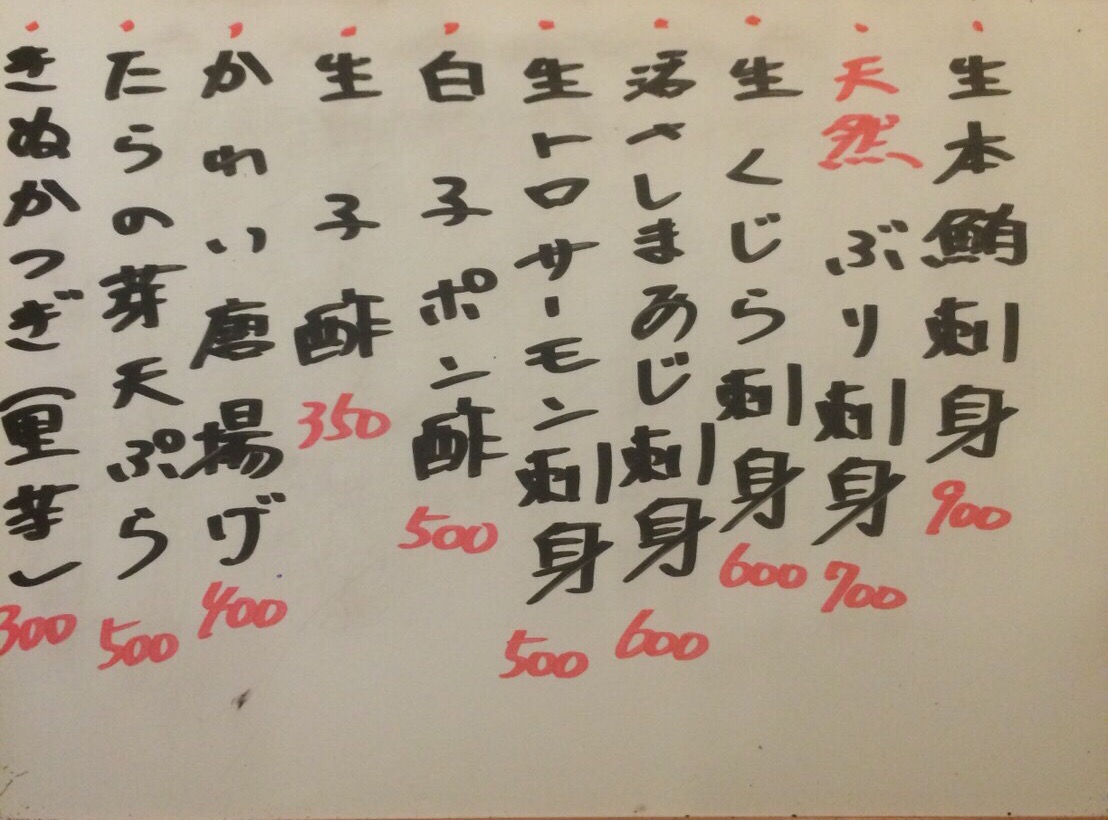 ・生本鮪刺身 900
・天然 ぶり刺身 700
・生くじら刺身 600
・活さしまあじ刺身 600
・生トロサーモン刺身 500
・白子ポン酢 500
・生子酢 350
・かれい唐揚げ 400
・たらの芽天ぷら 500
・きぬかつぎ(里芋) 300